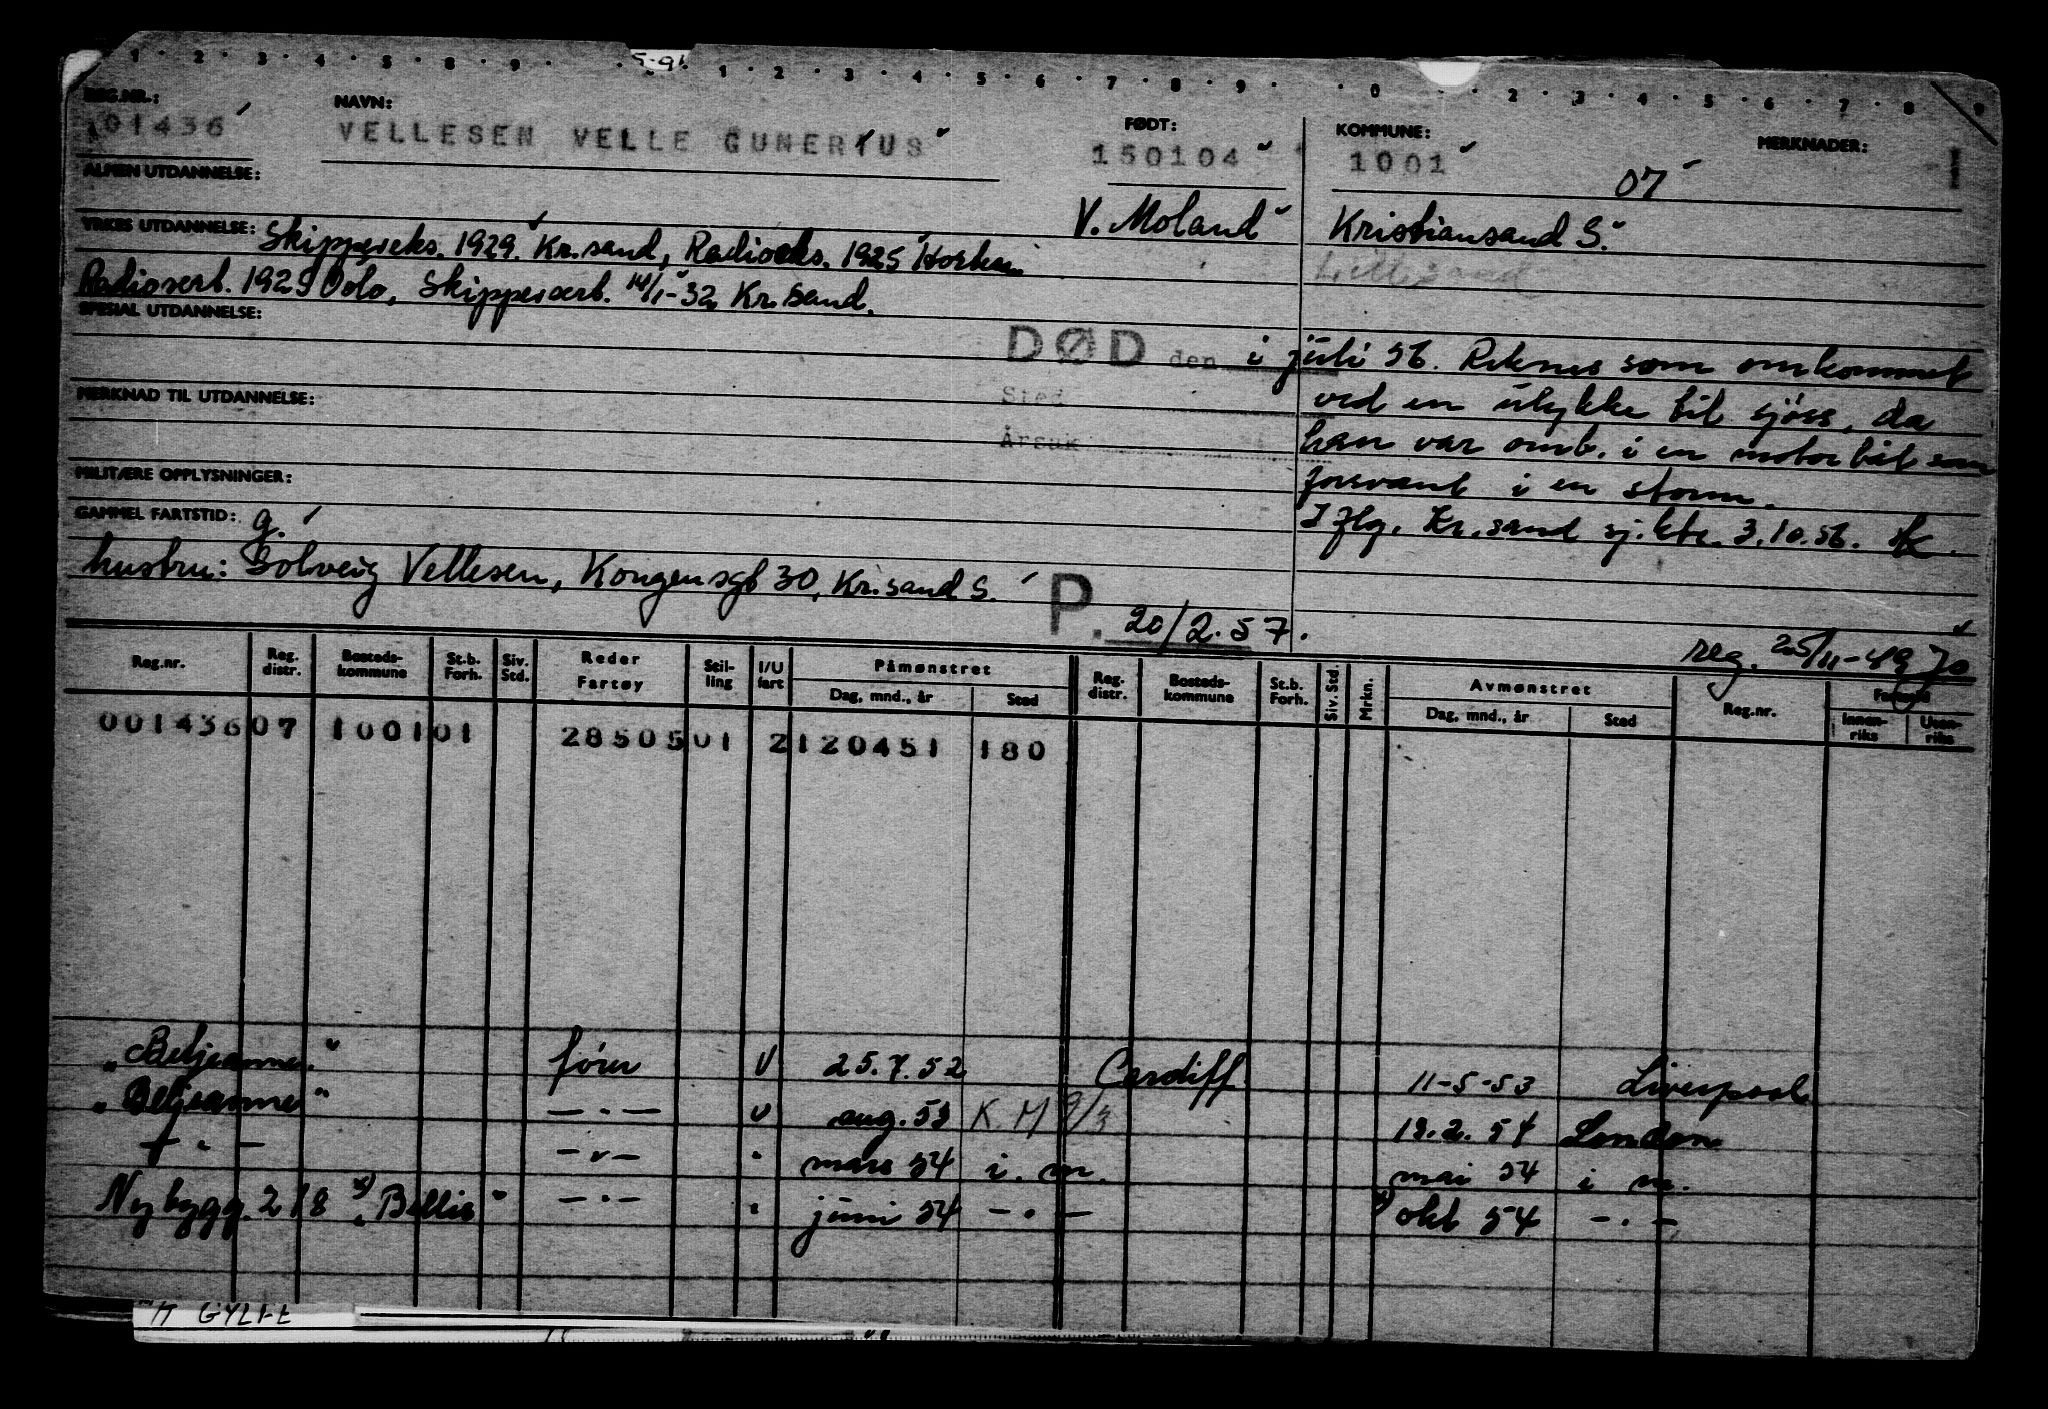 1 · 2 · 3 · 4 · 5 · 8 · 9 · · 1 · 2 · 3 · 4 · 5 · 6 · 7 · 8 · 9 · · 0 · · 2 · 3 · 4 · 5 · 6 · 7 · 8 · 9
REG.NR.: NAVN: FØDT: KOMMUNE: MERKNADER:
01436 VELLESEN VELLE GUNERIUS 150104 1001 07
ALMEN UTDANNELSE: V. Moland Kristiansand S.
YRKES UTDANNELSE: Skippereks. 1929. Kr.sand, Radioeks. 1925 Horten Lillesand
Radiosert. 1925 Oslo, Skippersert. 14/1-32 Kr.sand.
SPESIAL UTDANNELSE:
DØD den i juli 56. Reknes som omkommet
MERKNAD TIL UTDANNELSE: Sted ved en ulykke til sjöss, da
Årsak han var omb. i en motorbåt som
MILITÆRE OPPLYSNINGER: forsvant i en storm.
GAMMEL FARTSTID: g. I flg. Kr.sand sj.ktr. 3.10.56.
hustru: Solveig Vellesen, Kongensgt 30, Kr.sand S.
P. 20/2.57.
reg. 25/11-49 Jo
Reg.nr. Reg. distr. Bosteds-kommune St.b. Forh. Siv. Std. Reder Fartøy Stil-ling I/U fart Påmønstret Dag, mnd., år Sted Reg. distr. Bosteds-kommune St.b. Forh. Siv. Std. Mrkn. Avmønstret Dag, mnd., år Sted Reg.nr. Innen-riks Uten-riks
00143607 100101 28505 01 2 120451 180
"Beljeanne" fører V 25.7.52 Cardiff 11-5-53 Liverpool
"Beljeanne" —.— v aug. 53 K.M 9/3 19.2.54 London
— " — —"— " mars 54 i. m. mai 54 i m.
Nybygg. 218 x) "Bellis" —.— " juni 54 —.— x) okt 54 —.—
H GYLFE